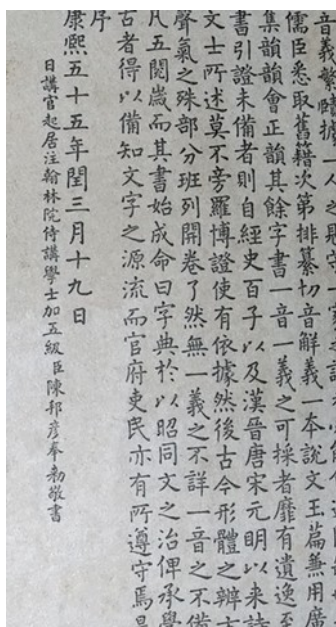 音義繁賾據一人之見守一家之說
儒臣悉取舊籍次第排纂切音解義一本說文玉篇兼用廣
集韻韻會正韻其餘字書一音一義之可採者靡有遺逸至
書引證未備者則自經史百子以及漢晉唐宋元明以來詩
文士所述莫不旁羅博證使有依據然後古今形體之辨方
聲氣之殊部分班列開卷了然無一義之不詳一音之不備
凡五閱歲而其書始成命曰字典於以昭同文之治俾承學
古者得以備知文字之源流而官府吏民亦有所遵守焉是
序
康熙五十五年閏三月十九日
日講官起居注翰林院侍講學士加五級臣陳邦彥奉勅敬書